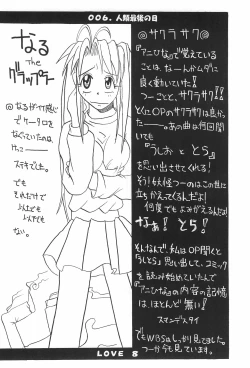 006. 人類最後の日
◎サクラサク◎
『アニひな』で覚えている
ことは、なーんかムダに
良く動いていた!
つーことと、サクラサク!!
とくにOPのサクラサクは良か
った――あの曲は何回聞
いても
『うしおととら』
を思い出させてくれる!
そう!妖怪つーのはこの世に
立ちかえってくるんだよ!
何度でもよみがえるんだよ!
なぁ!とら!
そんなんで、私はOP聞くと
『うしとら』思い出して、コミック
を読み始めていたんで
『アニひな』の内容の記憶
は、ほとんど無い!
スマンデスタイ
でもWBSはしっかり見てました。
つーか今も見ています。
なる
The
グラップラー
◎なるがーって感じ
でサークロを
なぐっていたのは、
けっこー
ステキでした。
でも
それだけで
LOVE 8